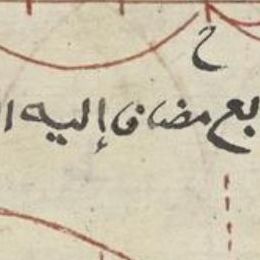 ح
بع مضاف إليه ا